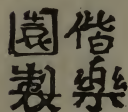 偕樂
園製